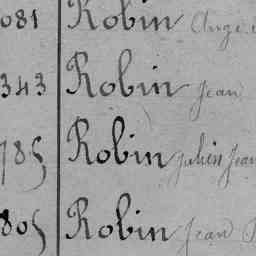 081 Robin Ange
343 Robin Jean
785 Robin Julien Jean
805 Robin Jean